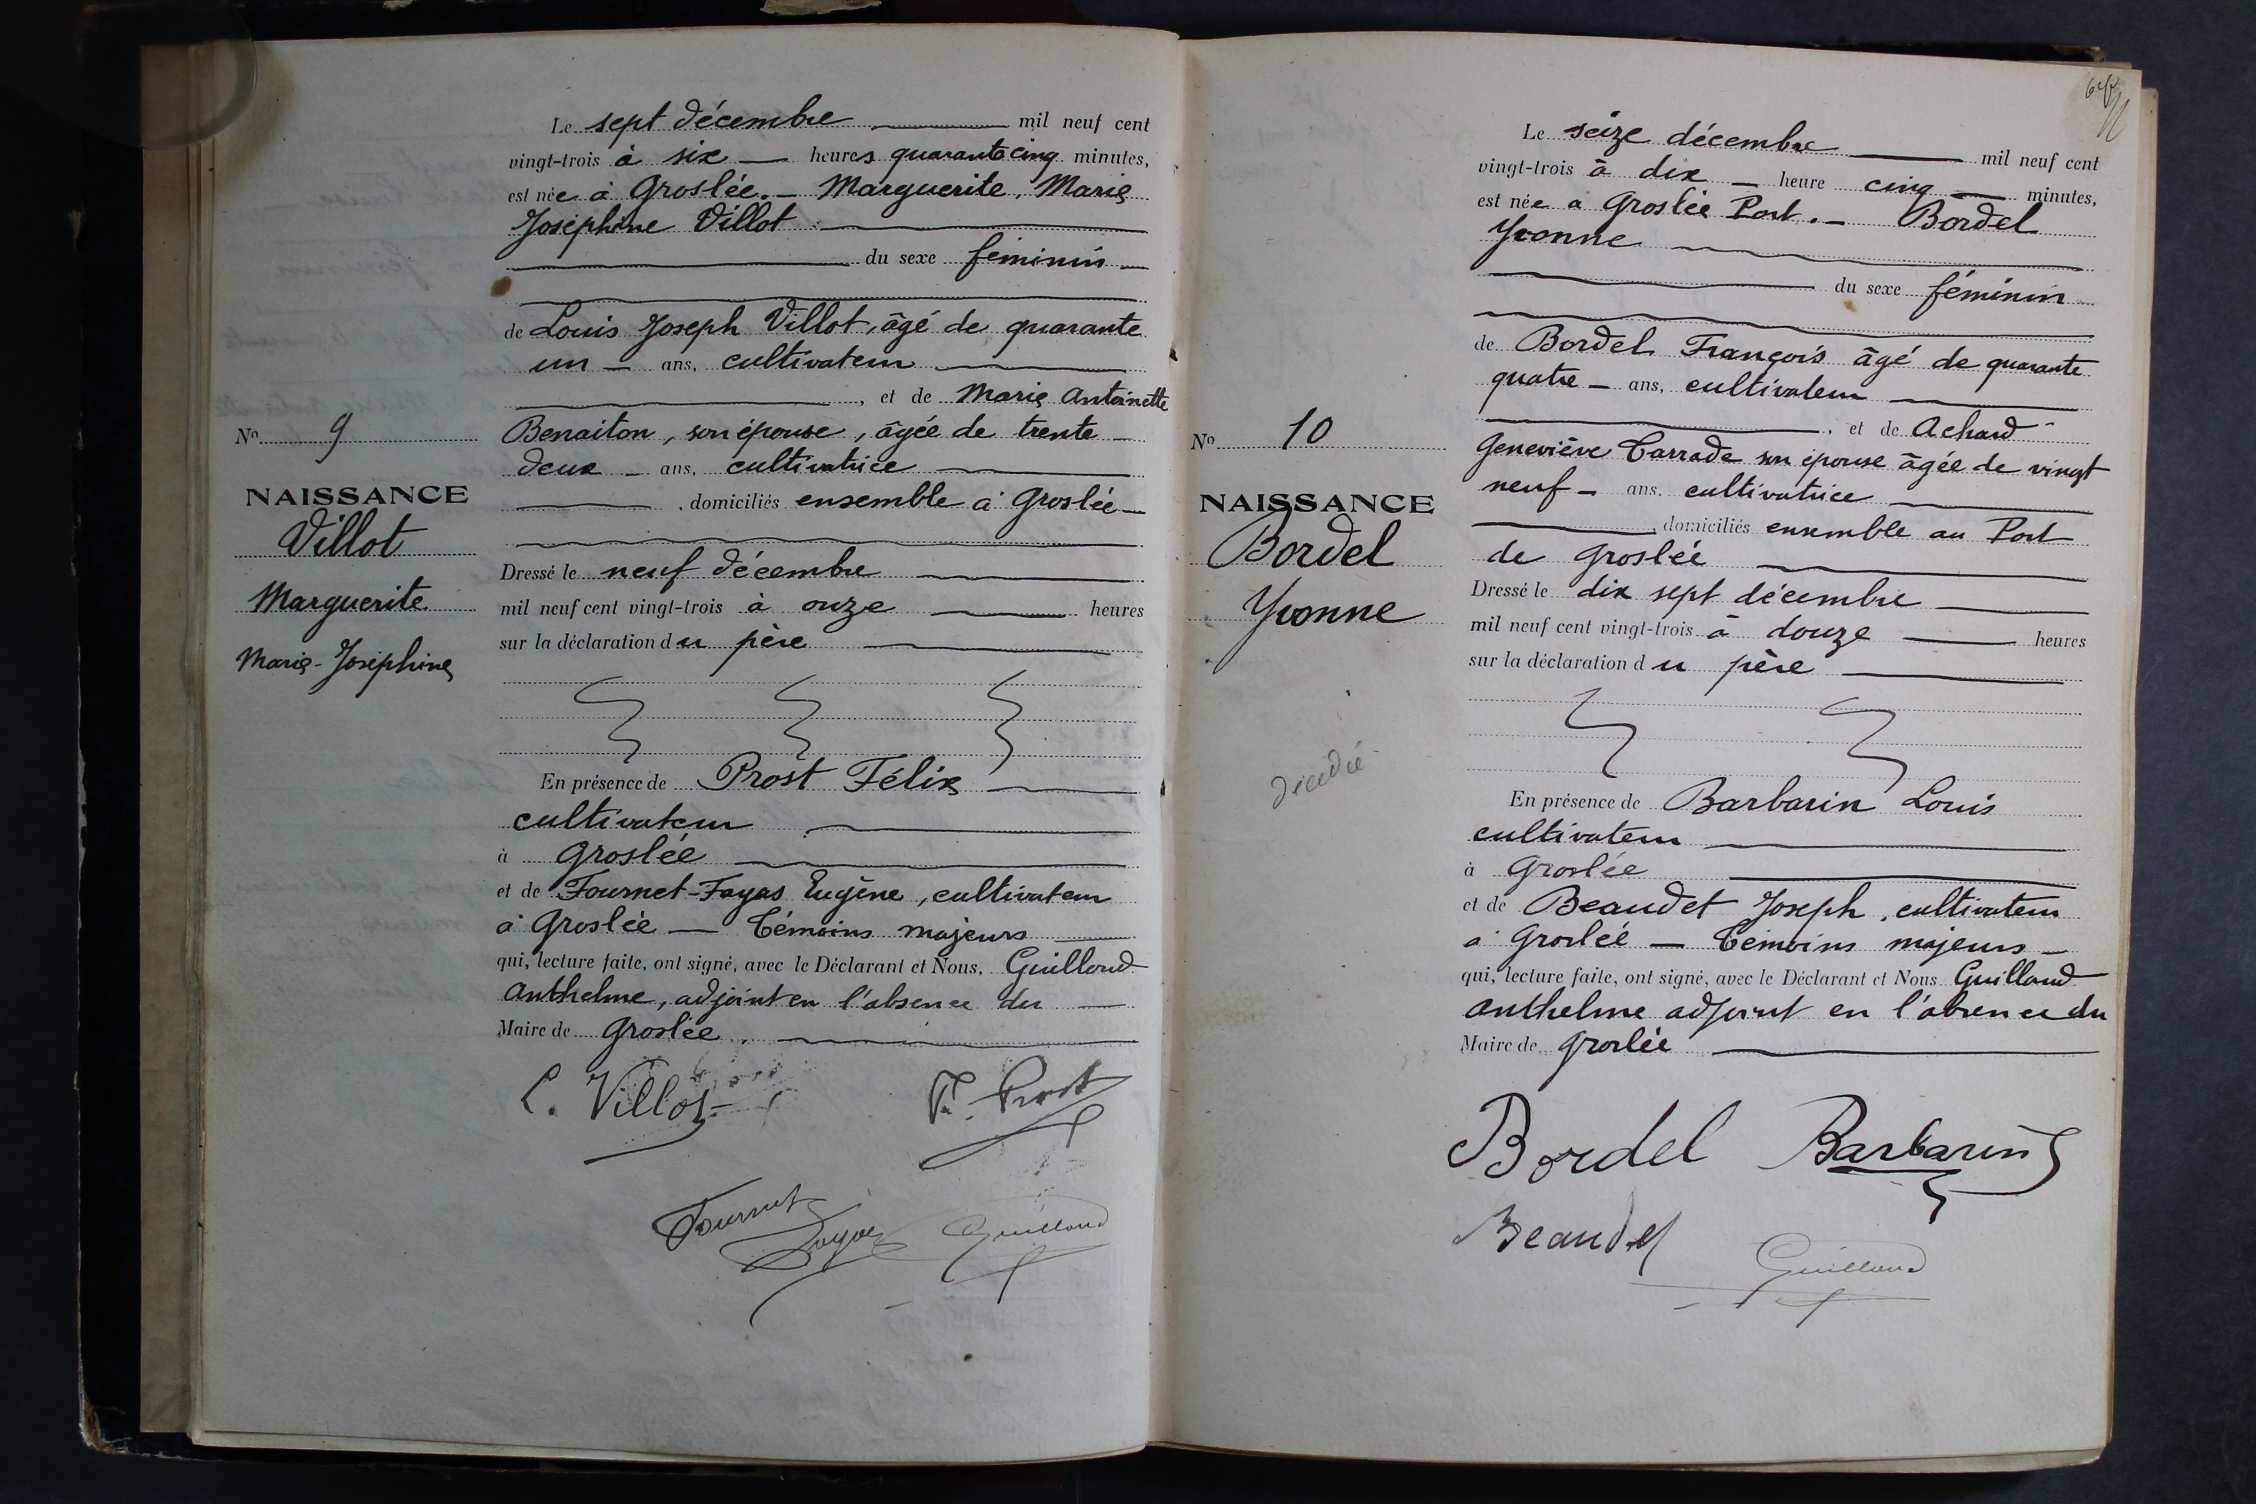 Le sept décembre mil neuf cent
vingt-trois à six heures quarante cinq minutes,
est née à Groslée. Marguerite, Marie
Joséphine Villot
du sexe féminin
de Louis Joseph Villot, âgé de quarante
un ans, cultivateur
, et de Marie Antoinette
Benaiton, son épouse, âgée de trente
deux ans, cultivatrice
, domiciliés ensemble à Groslée
Dressé le neuf décembre
mil neuf cent vingt-trois à onze heures
sur la déclaration du père
En présence de Prost Félix
cultivateur
à Groslée
et de Fournet-Fayas Eugène, cultivateur
à Groslée Témoins majeurs
qui, lecture faite, ont signé, avec le Déclarant et Nous, Guilloud
Anthelme, adjoint en l'absence du
Maire de Groslée.
L. Villot
F. Prost
Fournet
Fayas
Guilloud
No 9
NAISSANCE
Villot
Marguerite
Marie-Joséphine
Le seize décembre mil neuf cent
vingt-trois à dix heure cinq minutes,
est née à Groslée Port. Bordel
Yvonne
du sexe féminin
de Bordel François âgé de quarante
quatre ans, cultivateur
, et de Achard
Geneviève Tarrade son épouse âgée de vingt
neuf ans, cultivatrice
, domiciliés ensemble au Port
de Groslée
Dressé le dix sept décembre
mil neuf cent vingt-trois à douze heures
sur la déclaration du père
En présence de Barbarin Louis
cultivateur
à Groslée
et de Beaudet Joseph, cultivateur
à Groslée Témoins majeurs
qui, lecture faite, ont signé, avec le Déclarant et Nous Guilloud
Anthelme adjoint en l'absence du
Maire de Groslée
Bordel Barbarin
Beaudet
Guilloud
No 10
NAISSANCE
Bordel
Yvonne